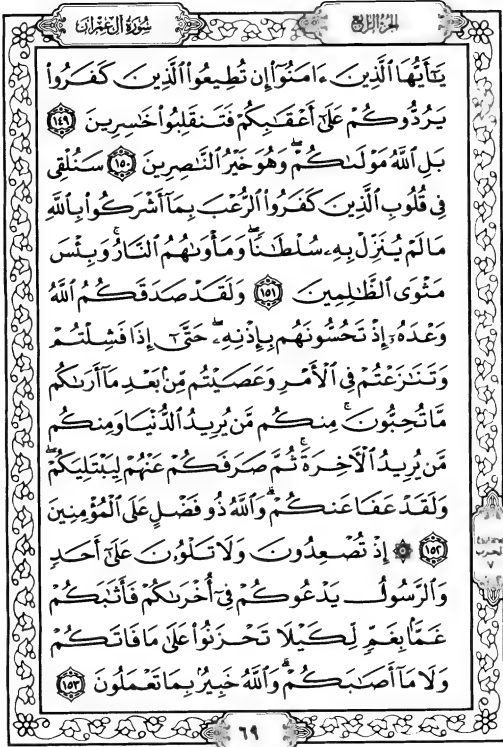 سُورَةُ آلِ عِمْرَان
الجُزْءُ الرَّابِعُ
يَٰٓأَيُّهَا ٱلَّذِينَ ءَامَنُوٓا۟ إِن تُطِيعُوا۟ ٱلَّذِينَ كَفَرُوا۟
يَرُدُّوكُمْ عَلَىٰٓ أَعْقَٰبِكُمْ فَتَنقَلِبُوا۟ خَٰسِرِينَ ١٤٩
بَلِ ٱللَّهُ مَوْلَىٰكُمْ ۖ وَهُوَ خَيْرُ ٱلنَّٰصِرِينَ ١٥٠ سَنُلْقِى
فِى قُلُوبِ ٱلَّذِينَ كَفَرُوا۟ ٱلرُّعْبَ بِمَآ أَشْرَكُوا۟ بِٱللَّهِ
مَا لَمْ يُنَزِّلْ بِهِۦ سُلْطَٰنًا ۖ وَمَأْوَىٰهُمُ ٱلنَّارُ ۚ وَبِئْسَ
مَثْوَى ٱلظَّٰلِمِينَ ١٥١ وَلَقَدْ صَدَقَكُمُ ٱللَّهُ
وَعْدَهُۥٓ إِذْ تَحُسُّونَهُم بِإِذْنِهِۦ ۖ حَتَّىٰٓ إِذَا فَشِلْتُمْ
وَتَنَٰزَعْتُمْ فِى ٱلْأَمْرِ وَعَصَيْتُم مِّنۢ بَعْدِ مَآ أَرَىٰكُم
مَّا تُحِبُّونَ ۚ مِنكُم مَّن يُرِيدُ ٱلدُّنْيَا وَمِنكُم
مَّن يُرِيدُ ٱلْأَخِرَةَ ۚ ثُمَّ صَرَفَكُمْ عَنْهُمْ لِيَبْتَلِيَكُمْ ۖ
وَلَقَدْ عَفَا عَنكُمْ ۗ وَٱللَّهُ ذُو فَضْلٍ عَلَى ٱلْمُؤْمِنِينَ
١٥٢ ۞ إِذْ تُصْعِدُونَ وَلَا تَلْوُۥنَ عَلَىٰٓ أَحَدٍ
وَٱلرَّسُولُ يَدْعُوكُمْ فِىٓ أُخْرَىٰكُمْ فَأَثَٰبَكُمْ
غَمًّۢا بِغَمٍّ لِّكَيْلَا تَحْزَنُوا۟ عَلَىٰ مَا فَاتَكُمْ
وَلَا مَآ أَصَٰبَكُمْ ۗ وَٱللَّهُ خَبِيرٌۢ بِمَا تَعْمَلُونَ ١٥٣
الحزب
٧
٦٩